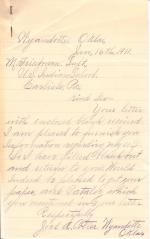 Wyandotte Okla.
Jan, 16th 1911.
M. Friedman, Supt.
U.S. Indian School,
Carlisle, Pa.
Kind Sir:-
Your letter
with enclosed blank received
I am pleased to furnish you
information regarding myself
So I have filled blank out
and return to you. Would
indeed be pleased to get your
paper, and Catalog which
you mentioned in your letter.
Respectfully
Wyandotte
Okla